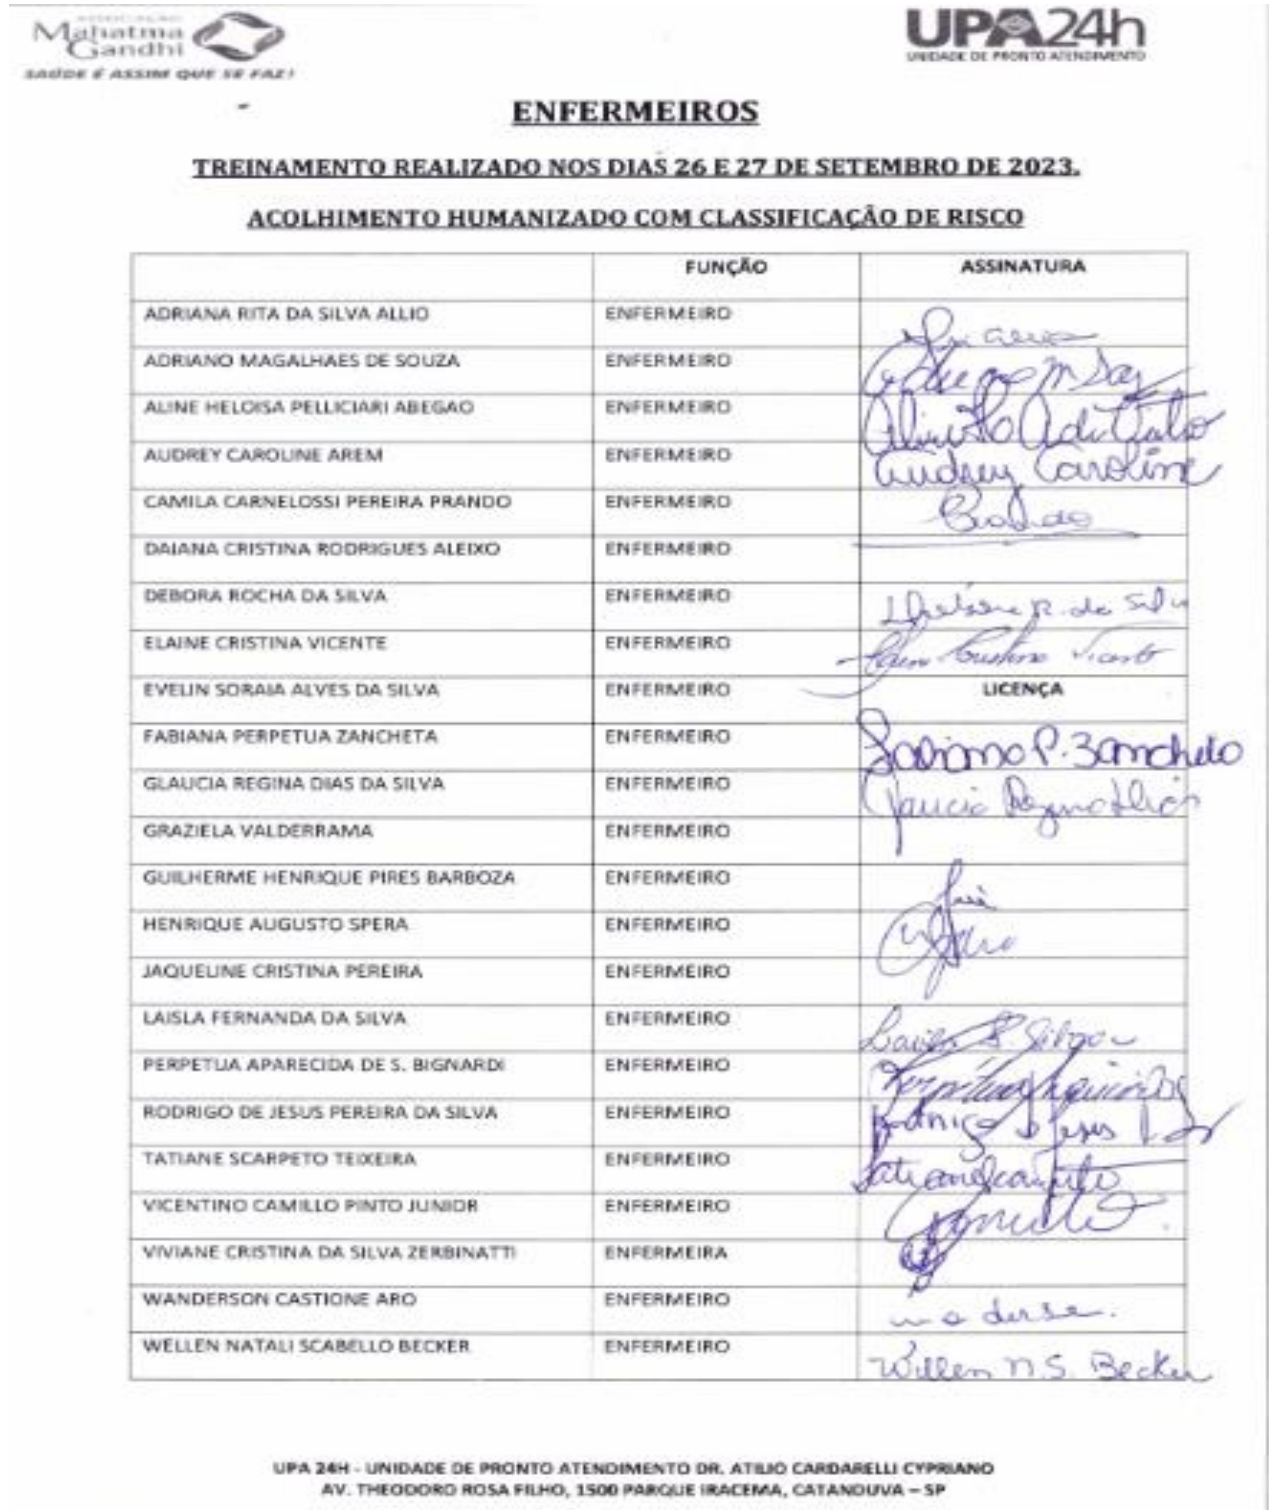 ASSOCIAÇÃO
Mahatma
Gandhi
SAÚDE É ASSIM QUE SE FAZ!
UPA24h
UNIDADE DE PRONTO ATENDIMENTO
ENFERMEIROS
TREINAMENTO REALIZADO NOS DIAS 26 E 27 DE SETEMBRO DE 2023.
ACOLHIMENTO HUMANIZADO COM CLASSIFICAÇÃO DE RISCO
FUNÇÃO ASSINATURA
ADRIANA RITA DA SILVA ALLIO ENFERMEIRO
ADRIANO MAGALHAES DE SOUZA ENFERMEIRO
ALINE HELOISA PELLICIARI ABEGAO ENFERMEIRO
AUDREY CAROLINE AREM ENFERMEIRO Audrey Caroline
CAMILA CARNELOSSI PEREIRA PRANDO ENFERMEIRO
DAIANA CRISTINA RODRIGUES ALEIXO ENFERMEIRO
DEBORA ROCHA DA SILVA ENFERMEIRO R. da Silva
ELAINE CRISTINA VICENTE ENFERMEIRO Cristina Vicente
EVELIN SORAIA ALVES DA SILVA ENFERMEIRO LICENÇA
FABIANA PERPETUA ZANCHETA ENFERMEIRO Fabiana P. Zancheta
GLAUCIA REGINA DIAS DA SILVA ENFERMEIRO Glaucia Regina Dias
GRAZIELA VALDERRAMA ENFERMEIRO
GUILHERME HENRIQUE PIRES BARBOZA ENFERMEIRO
HENRIQUE AUGUSTO SPERA ENFERMEIRO
JAQUELINE CRISTINA PEREIRA ENFERMEIRO
LAISLA FERNANDA DA SILVA ENFERMEIRO
PERPETUA APARECIDA DE S. BIGNARDI ENFERMEIRO
RODRIGO DE JESUS PEREIRA DA SILVA ENFERMEIRO
TATIANE SCARPETO TEIXEIRA ENFERMEIRO
VICENTINO CAMILLO PINTO JUNIOR ENFERMEIRO
VIVIANE CRISTINA DA SILVA ZERBINATTI ENFERMEIRA
WANDERSON CASTIONE ARO ENFERMEIRO
WELLEN NATALI SCABELLO BECKER ENFERMEIRO Wellen N.S. Becker
UPA 24H - UNIDADE DE PRONTO ATENDIMENTO DR. ATILIO CARDARELLI CYPRIANO
AV. THEODORO ROSA FILHO, 1500 PARQUE IRACEMA, CATANDUVA – SP